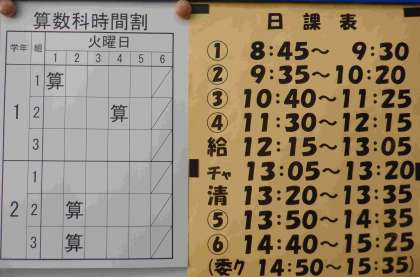 算数科時間割
学年 組 火曜日
1 2 3 4 5 6
1 1 算
2 算
3
2 1
2 算
3 算
日課表
① 8:45～ 9:30
② 9:35～10:20
③ 10:40～11:25
④ 11:30～12:15
給 12:15～13:05
チャ 13:05～13:20
清 13:20～13:35
⑤ 13:50～14:35
⑥ 14:40～15:25
(委ク 14:50～15:35)